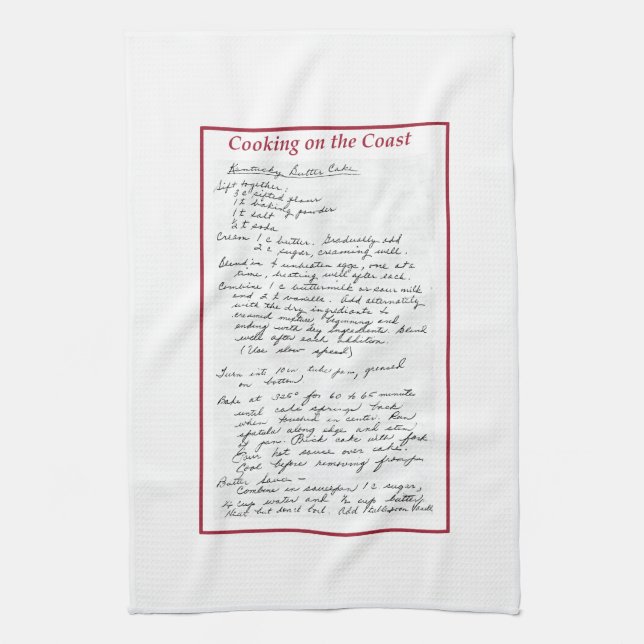 Cooking on the Coast
Kentucky Butter Cake
Sift together:
3 c sifted flour
1 t baking powder
1 t salt
½ t soda
Cream 1 c butter. Gradually add
2 c sugar, creaming well.
Blend in 4 unbeaten eggs, one at a
time, beating well after each.
Combine 1 c buttermilk or sour milk
and 2 t vanilla. Add alternately
with the dry ingredients to
creamed mixture, beginning and
ending with dry ingredients. Blend
well after each addition.
(Use slow speed)
Turn into 10 in. tube pan, greased
on bottom
Bake at 325° for 60 to 65 minute
until cake springs back
when touched in center. Run
spatula along edge and stem
of pan. Prick cake with fork
Pour hot sauce over cake.
Cool before removing from pan
Butter Sauce —
Combine in saucepan 1 c. sugar,
¼ cup water and ½ cup butter,
Heat but don't boil. Add 1 tablespoon Vanilla